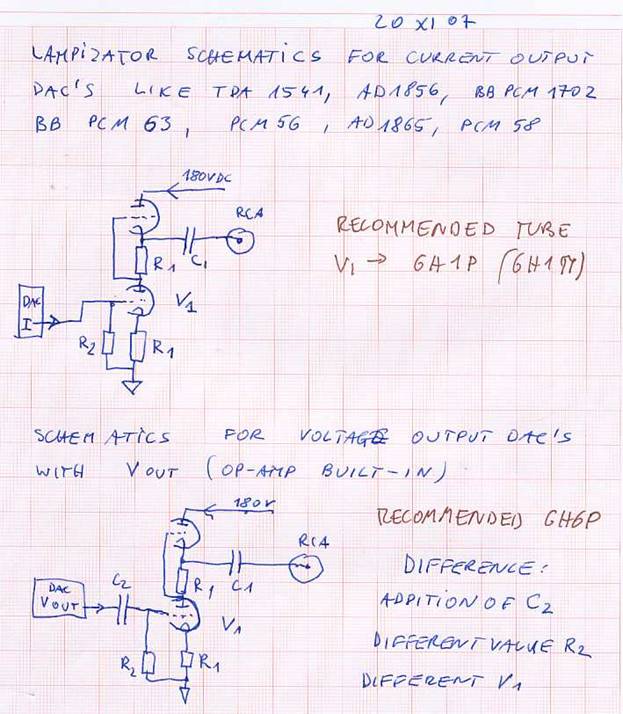 20 XI 07
LAMPIZATOR SCHEMATICS FOR CURRENT OUTPUT
DAC'S LIKE TDA 1541, AD1856, BB PCM 1702
BB PCM 63, PCM 56, AD1865, PCM 58
180VDC
RCA
R1 C1
V1
DAC
I
R2 R1
RECOMMENDED TUBE
V1 → 6H1P (6H1П)
SCHEMATICS FOR VOLTAGE OUTPUT DAC'S
WITH VOUT (OP-AMP BUILT-IN)
180V
RCA
R1 C1
DAC
VOUT
C2
V1
R2 R1
RECOMMENDED 6H6P
DIFFERENCE:
ADDITION OF C2
DIFFERENT VALUE R2
DIFFERENT V1